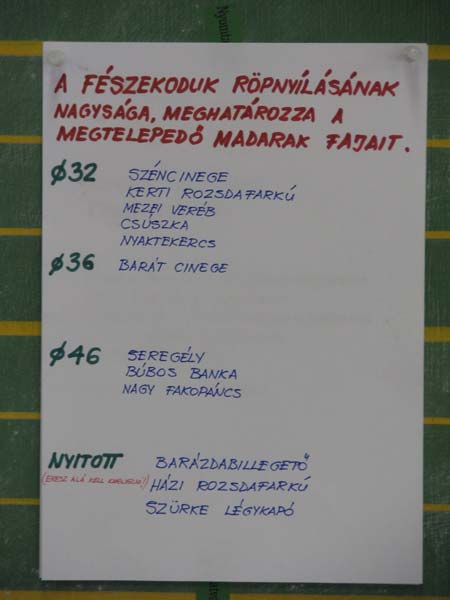 A FÉSZEKODUK RÖPNYÍLÁSÁNAK
NAGYSÁGA, MEGHATÁROZZA A
MEGTELEPEDŐ MADARAK FAJAIT.
ø32 SZÉNCINEGE
KERTI ROZSDAFARKÚ
MEZEI VERÉB
CSÚSZKA
NYAKTEKERCS
ø36 BARÁT CINEGE
ø46 SEREGÉLY
BÚBOS BANKA
NAGY FAKOPÁNCS
NYITOTT BARÁZDABILLEGETŐ
(ERESZ ALÁ KELL HÁZI ROZSDAFARKÚ
SZÜRKE LÉGYKAPÓ